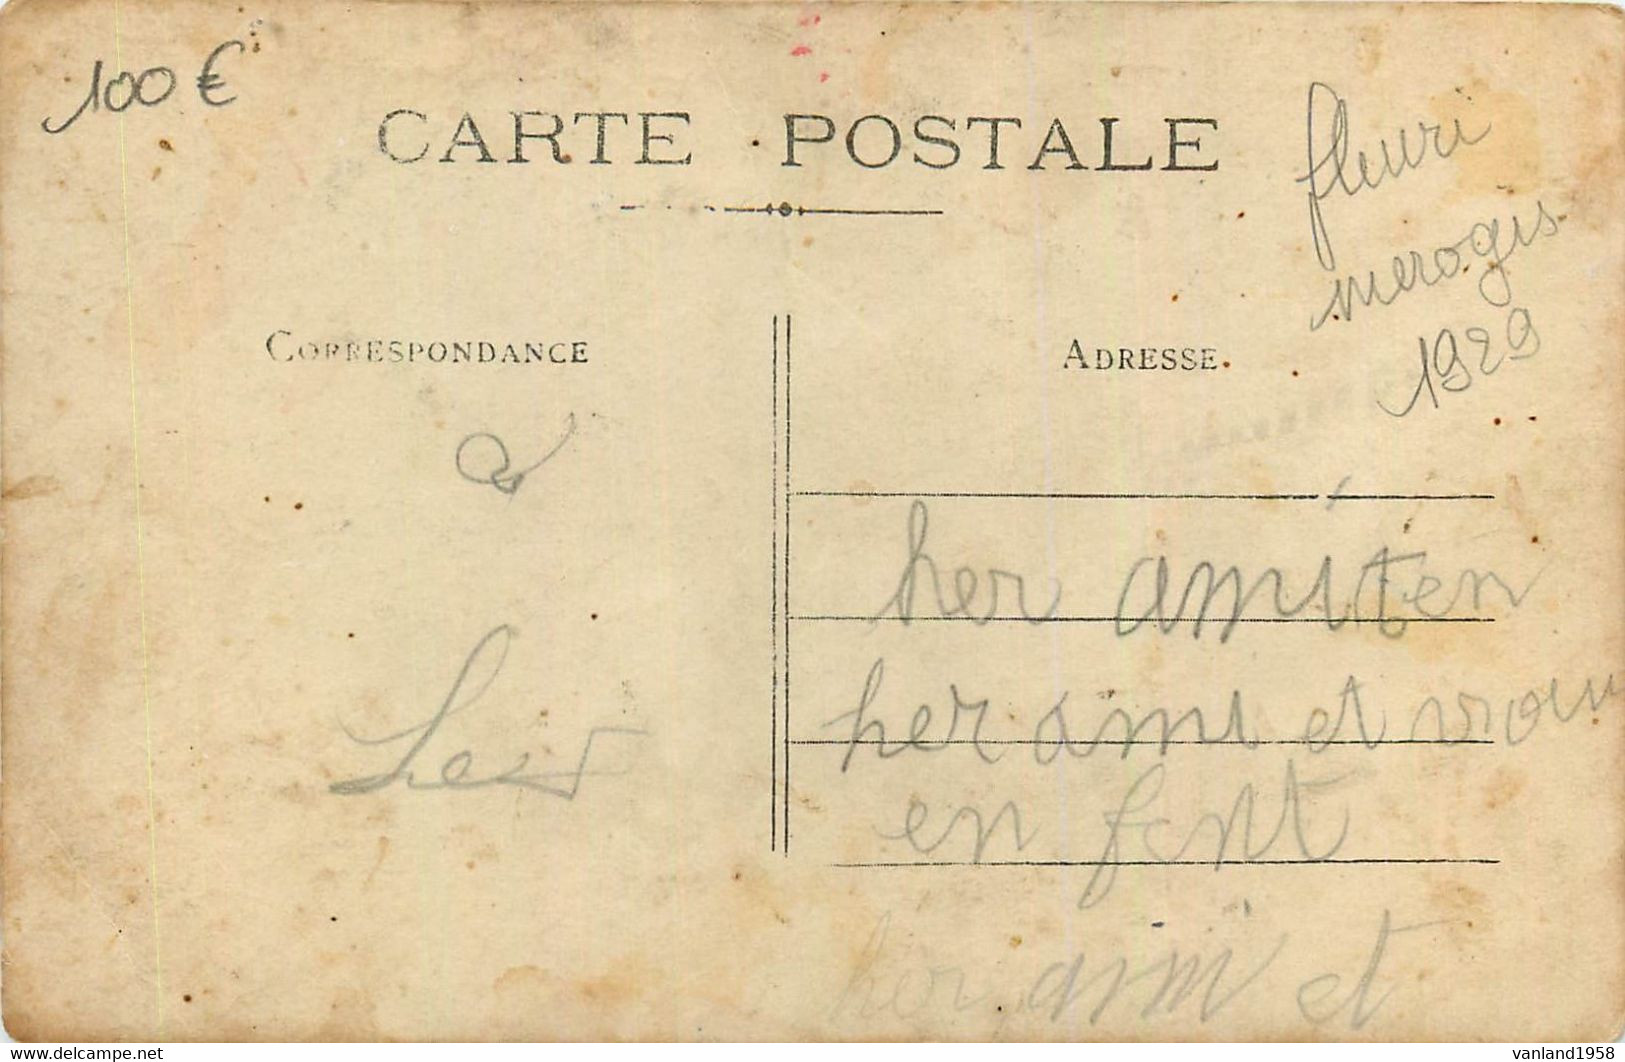 100 €
CARTE POSTALE
fleuri
merogis
1929
CORRESPONDANCE
ADRESSE
a
her amiten
her ami et vou
en fent
her aimi et
vanland1958